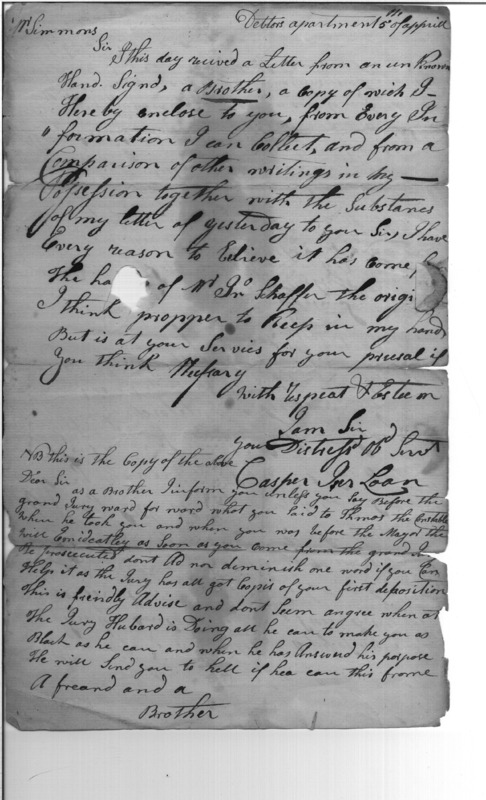 Debtors apartment 5th of apprill
Mr Simmons
Sir I this day recived a Letter from an unknown
Hand. Signd, a Brother, a copy of wich I
Hereby enclose to you, from Every In
"formation I can Collect, and from a
Comparison of other writings in my
Possession together with the Substance
of my letter of yesterday to you Sir, I have
Every reason to believe it has come,
The ha of Mr Jno Schaffer the origi
I think propper to Keep in my hands
But is at your Servies for your prusal if
You think Nessary
With respeat & Esteem
I am Sir
your Distressd Ob Servt
Casper Loan
NB this is the Copy of the above
Dear Sir
as a Brother I inform you unless you Say Before the
grand Jury ward for ward what you Said to Thmas the Constable
When he took you and when you was before the Mayor the
will emideatley as Soon as you come from the grand
Be prosecuted dont Ad nor deminish one word if you Can
Help it as the Jury has all got Copis of your first deposition
This is freindly Advise and dont Seem angree when at
The Jury Hubard is Doing all he can to make you as
Black as he can and when he has Answerd his porpose
He will Send you to hell if hea can this frome
A freand and a
Brother